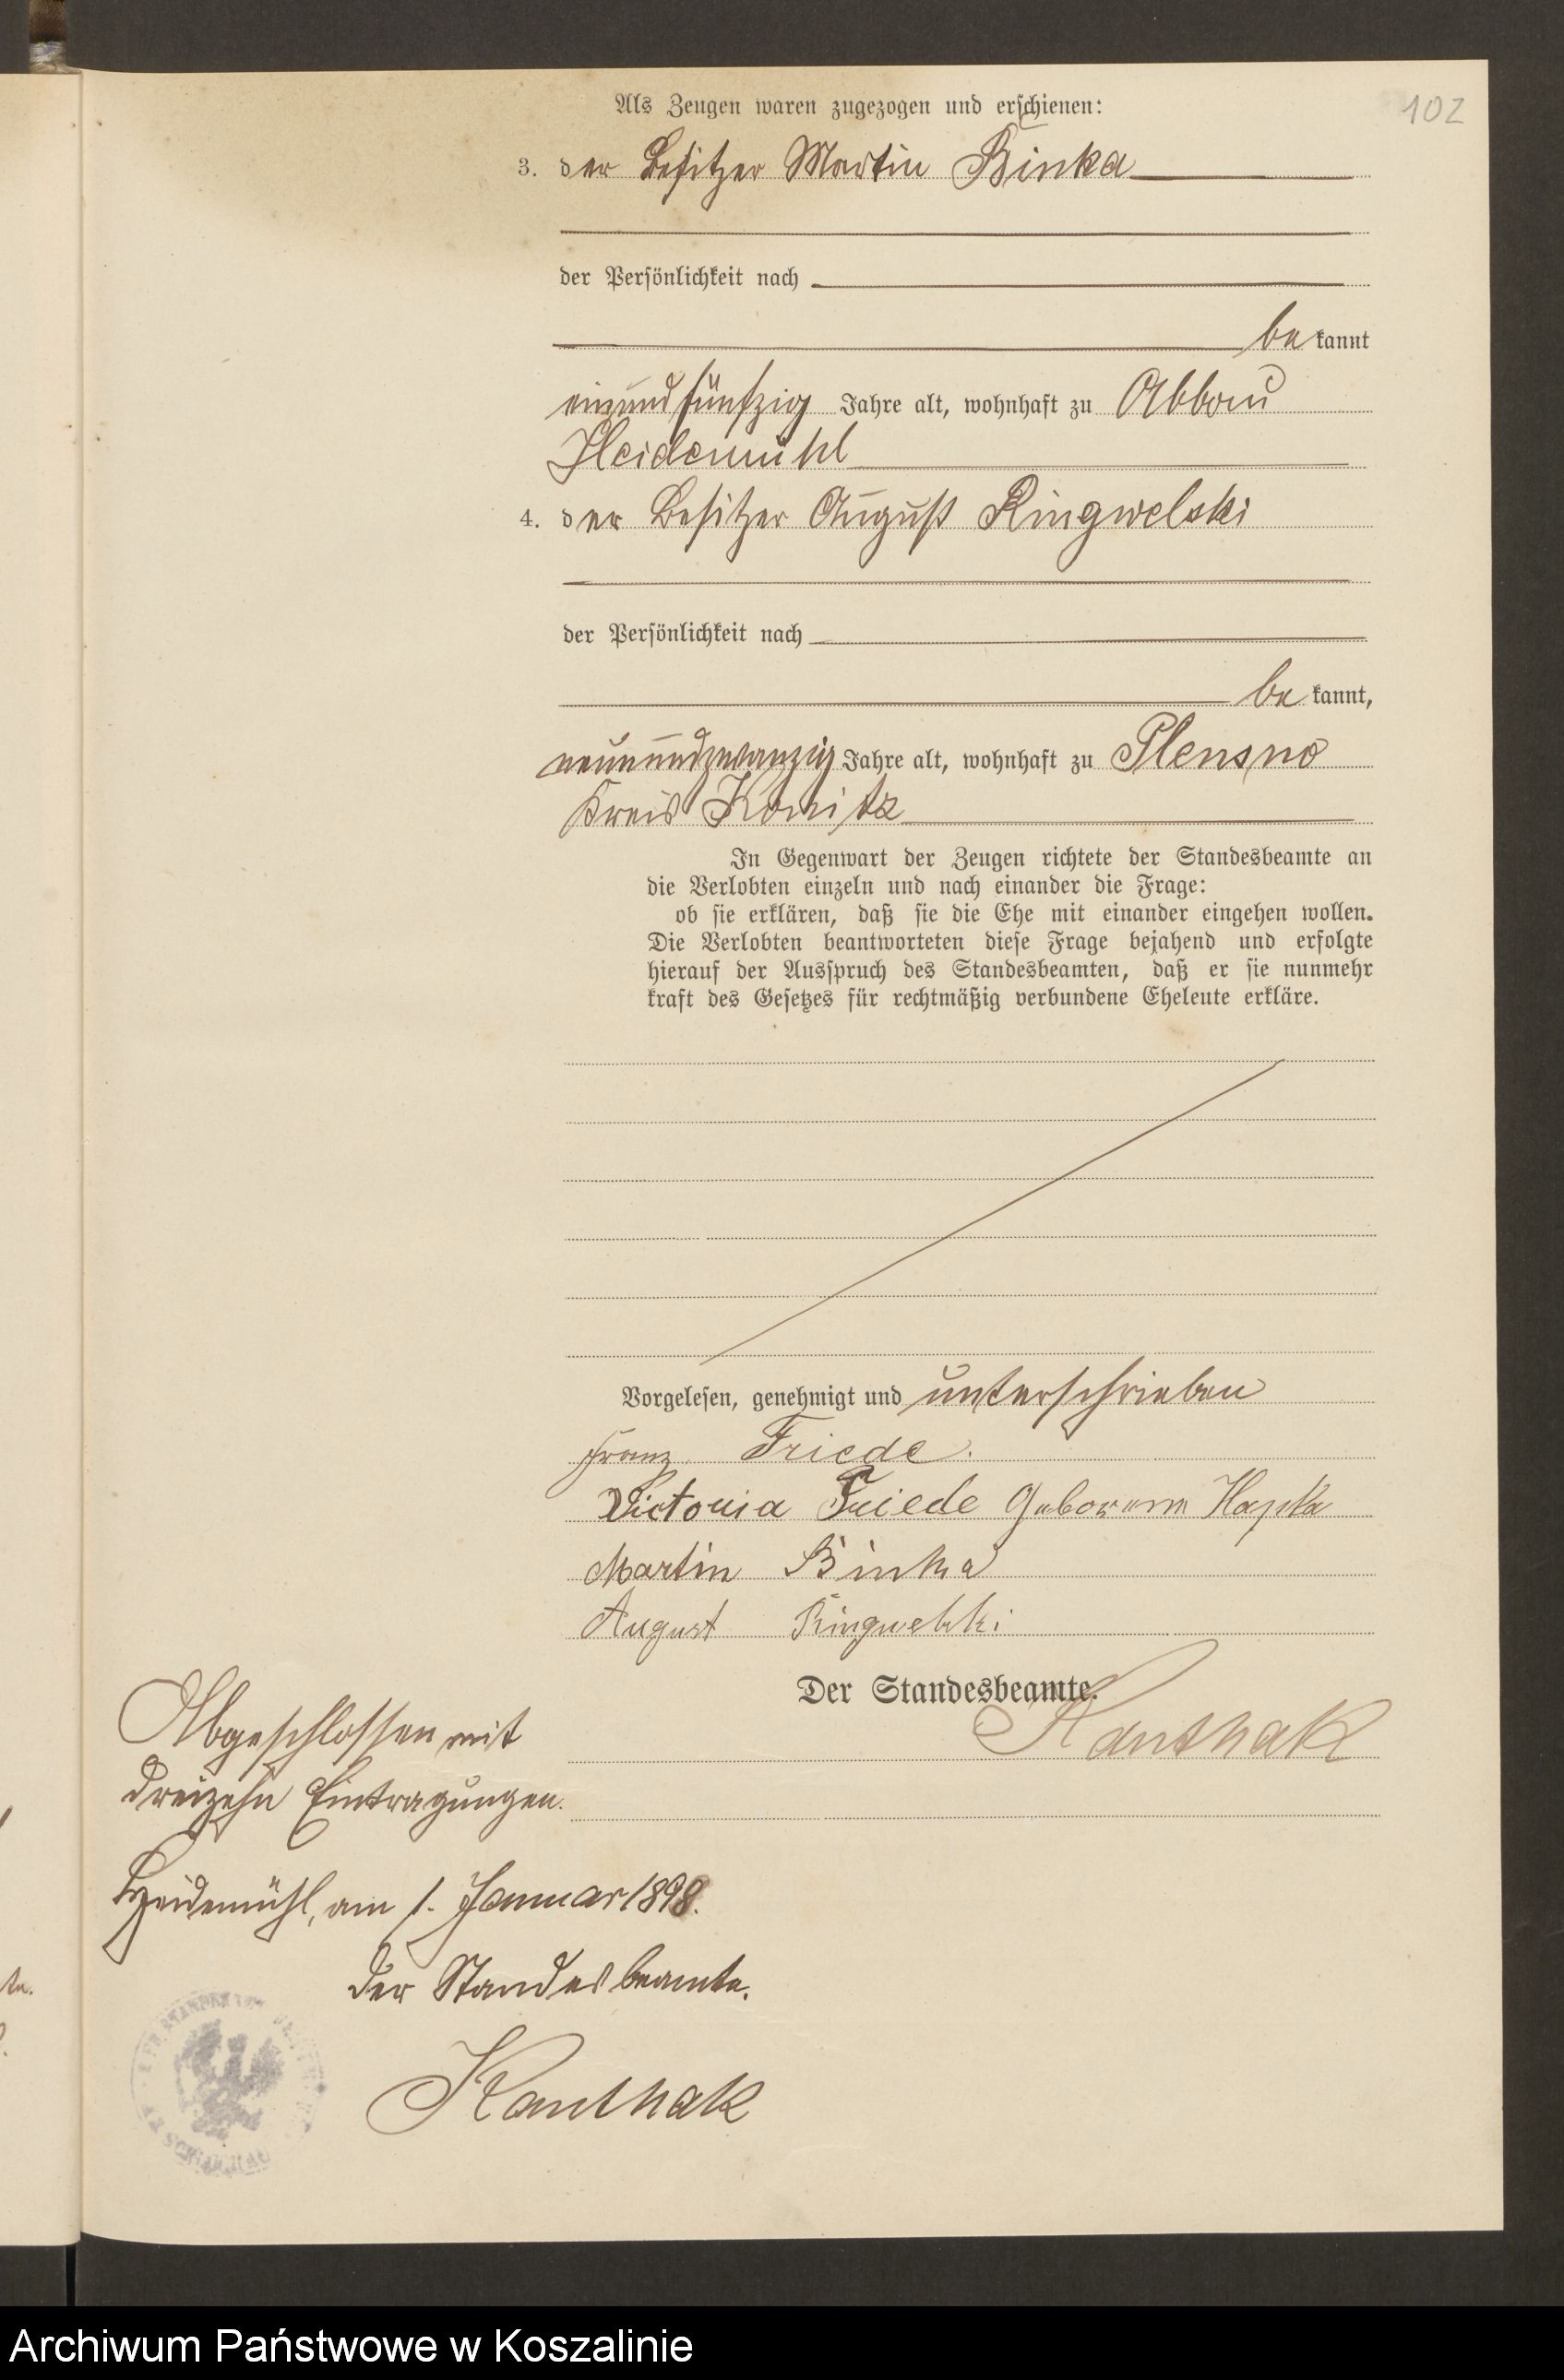 102
Als Zeugen waren zugezogen und erschienen:
3. der Besitzer Martin Binka
der Persönlichkeit nach
be kannt
einundfünfzig Jahre alt, wohnhaft zu Abbau
Heidemühl
4. der Besitzer August Ringwelski
der Persönlichkeit nach
be kannt,
neunundzwanzig Jahre alt, wohnhaft zu Plensno
Kreis Konitz
In Gegenwart der Zeugen richtete der Standesbeamte an
die Verlobten einzeln und nach einander die Frage:
ob sie erklären, daß sie die Ehe mit einander eingehen wollen.
Die Verlobten beantworteten diese Frage bejahend und erfolgte
hierauf der Ausspruch des Standesbeamten, daß er sie nunmehr
kraft des Gesetzes für rechtmäßig verbundene Eheleute erkläre.
Vorgelesen, genehmigt und unterschrieben
Franz Friede.
Victoria Friede Geborene Hapka
Martin Binka
August Ringwelski
Der Standesbeamte.
Kanthak
Abgeschlossen mit
dreizehn Eintragungen.
Heidemühl, am 1. Januar 1898.
Der Standesbeamte.
Kanthak
Archiwum Państwowe w Koszalinie